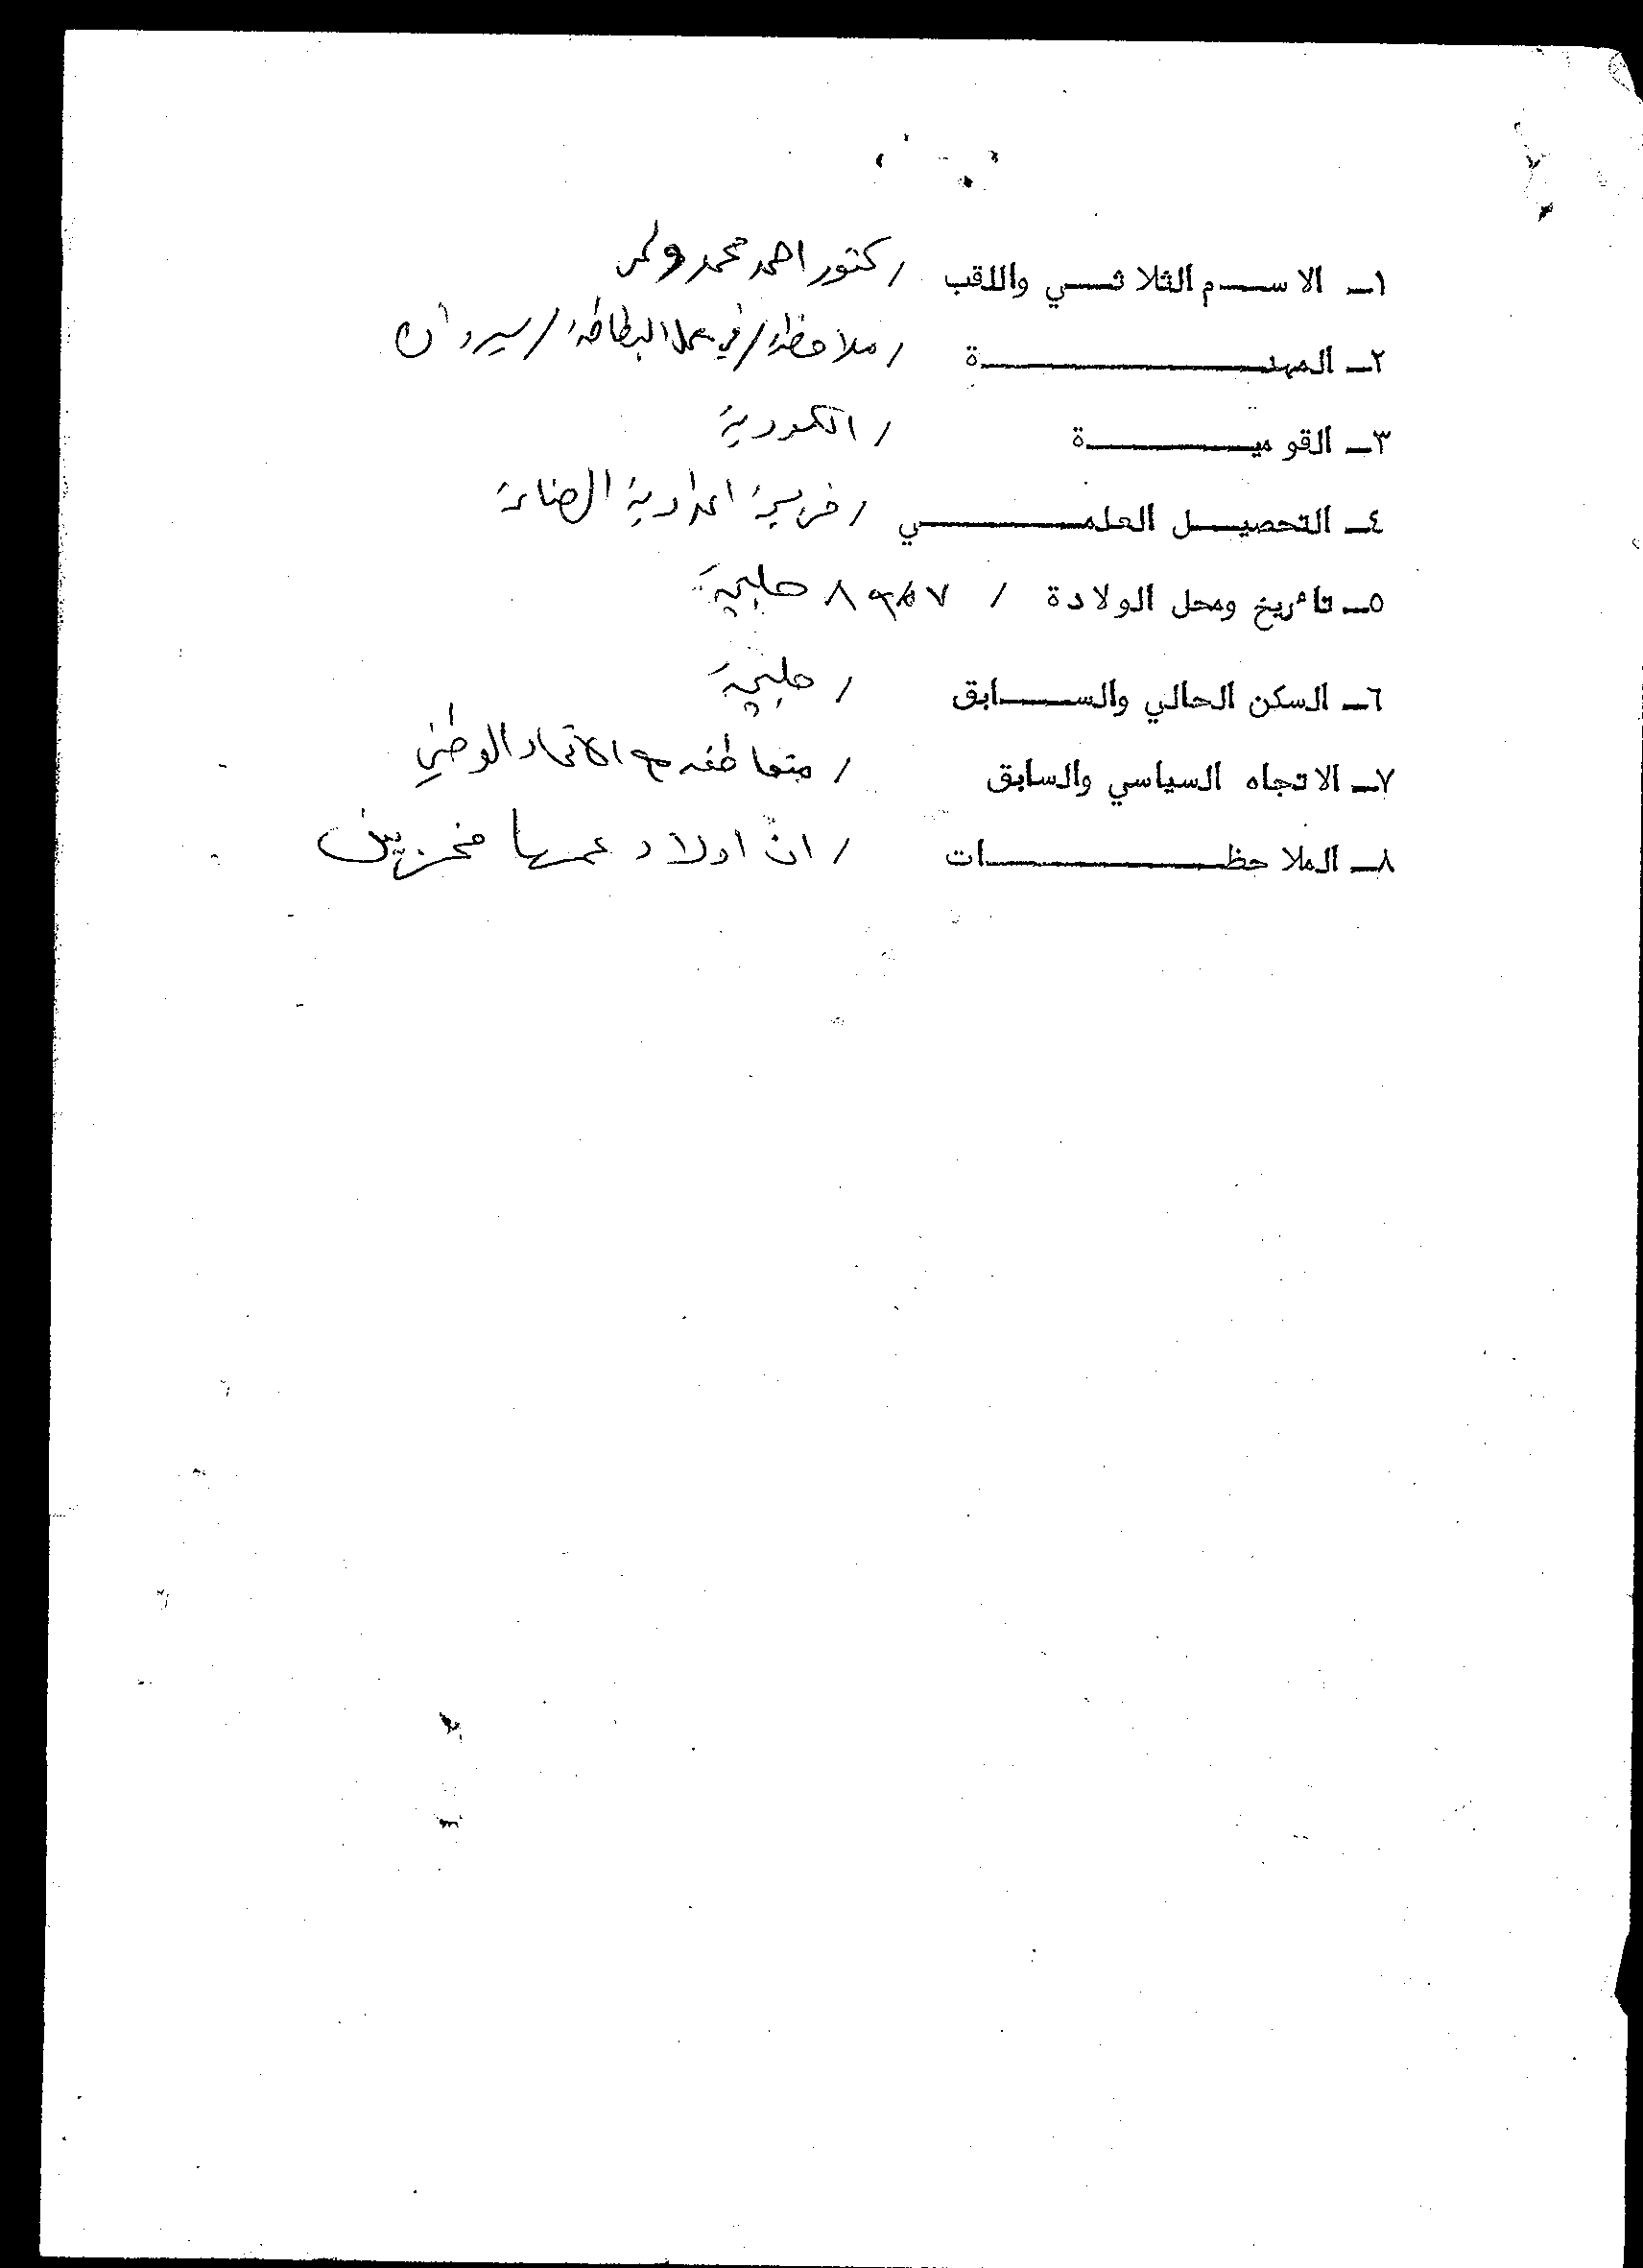 ١ـ الاسم الثلاثي واللقب / كتور احمد محمد ولي
٢ـ المهنة / ملاحظة / في معمل البطاطة / سيروان
٣ـ القومية / الكوردية
٤ـ التحصيل العلمي / خريجة اعدادية الصناعة
٥ـ تأريخ ومحل الولادة / حلبجة
٦ـ السكن الحالي والسابق / حلبجة
٧ـ الاتجاه السياسي والسابق / متعاطفه مع الاتحاد الوطني
٨ـ الملاحظات / ان اولاد عمها مخربين